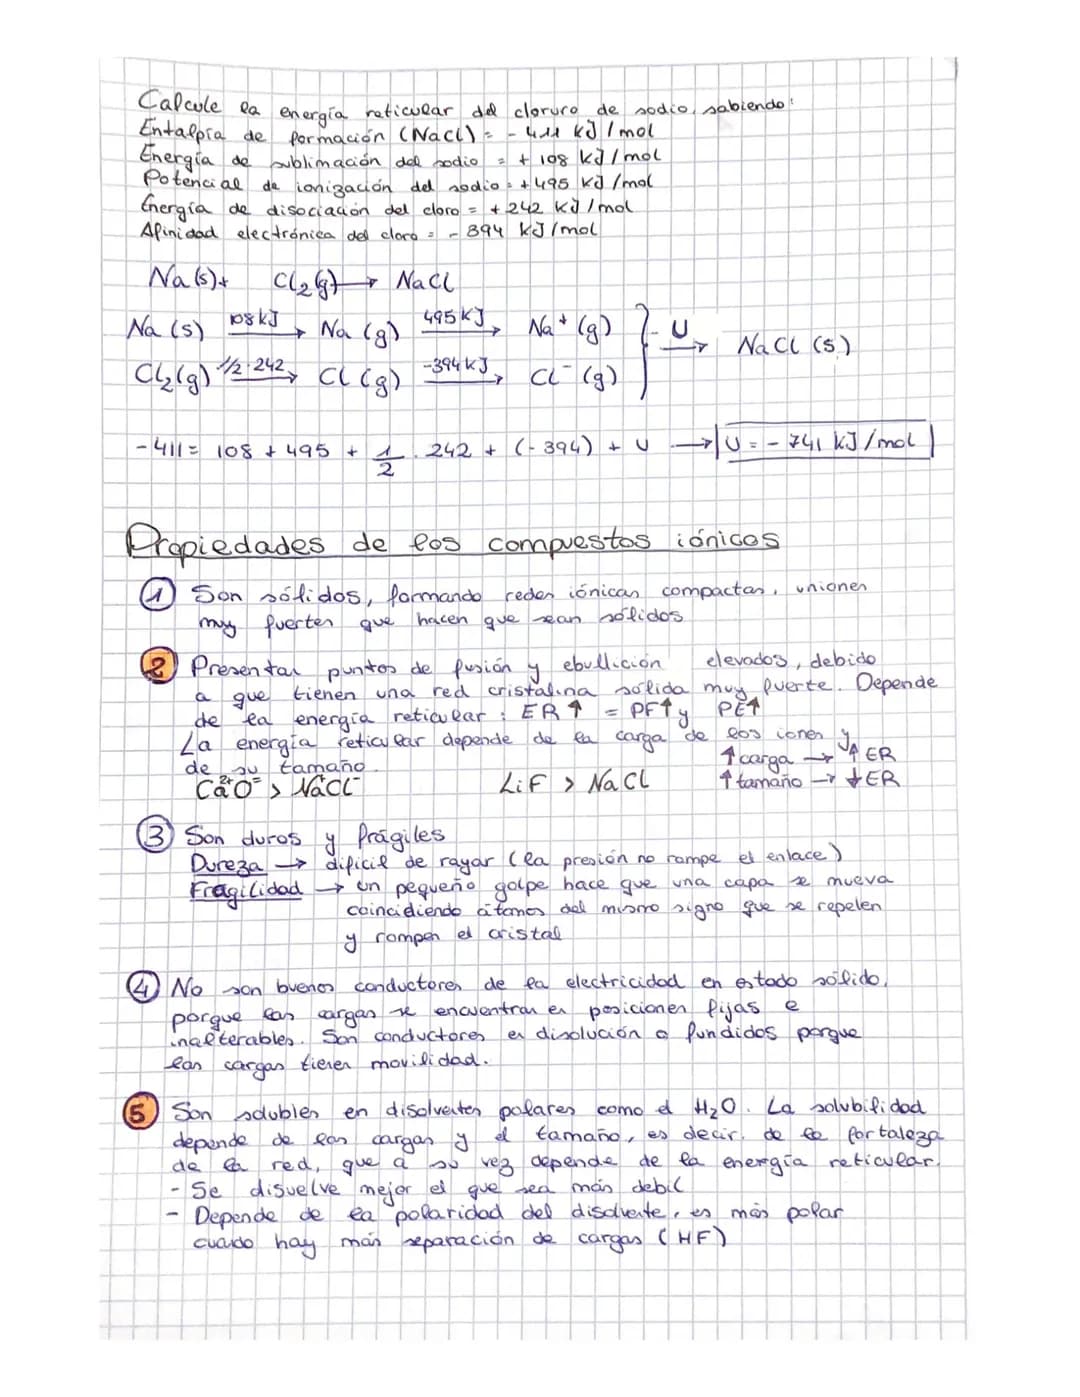 Calcule la energía reticular del cloruro de sodio, sabiendo:
Entalpía de formación (NaCl) = - 411 kJ / mol
Energía de sublimación del sodio = + 108 kJ / mol
Potencial de ionización del sodio = + 495 kJ / mol
Energía de disociación del cloro = + 242 kJ / mol
Afinidad electrónica del cloro = - 394 kJ / mol
Na (s) + Cl₂ (g) → NaCl
Na (s) 108 kJ → Na (g) 495 kJ → Na⁺ (g) } - U → NaCl (s)
Cl₂ (g) 1/2 · 242 → Cl (g) -394 kJ → Cl⁻ (g)
- 411 = 108 + 495 + 1/2 · 242 + (- 394) + U → U = - 741 kJ / mol
Propiedades de los compuestos iónicos
1 Son sólidos, formando redes iónicas compactas, uniones
muy fuertes que hacen que sean sólidos
2 Presentan puntos de fusión y ebullición elevados, debido
a que tienen una red cristalina sólida muy fuerte. Depende
de la energía reticular : ER ↑ = PF↑ y PE↑
La energía reticular depende de la carga de los iones y
de su tamaño. ↑ carga → ↑ ER
Ca²⁺O⁼ > Na⁺Cl⁻ LiF > NaCl ↑ tamaño → ↓ ER
3 Son duros y frágiles
Dureza → dificil de rayar (la presión no rompe el enlace)
Fragilidad → un pequeño golpe hace que una capa se mueva
coincidiendo átomos del mismo signo que se repelen
y rompen el cristal
4 No son buenos conductores de la electricidad en estado sólido,
porque las cargas se encuentran en posiciones fijas e
inalterables. Son conductores en disolución o fundidos porque
las cargas tienen movilidad.
5 Son solubles en disolventes polares como el H₂O. La solubilidad
depende de las cargas y el tamaño, es decir, de la fortaleza
de la red, que a su vez depende de la energía reticular.
- Se disuelve mejor el que sea más debil
- Depende de la polaridad del disolvente, es más polar
cuando hay más separación de cargas (HF)